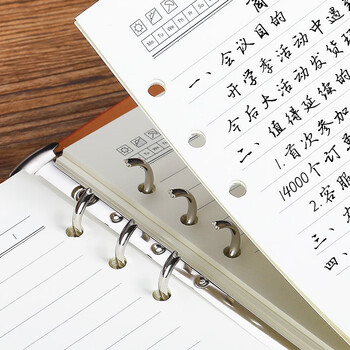 Mo Tu We Th Fr
一、会议目的
开学季活动中遇
今后大活动发货
二、值得延续的
1.首次参加
14000个订
2.客服
三、
四、